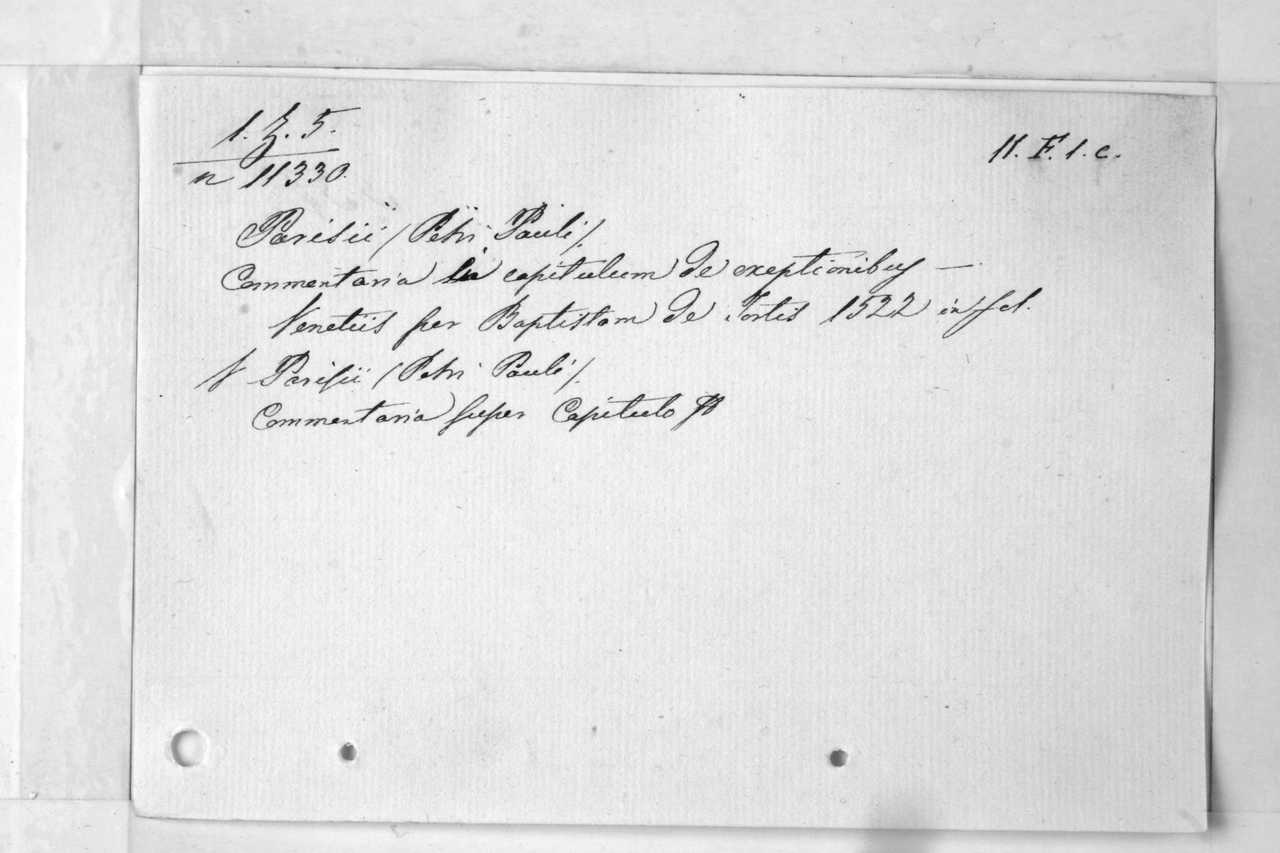 1. Z. 5.
n 11330.
11. F. 1. c.
Parisii /Petri Pauli/.
Commentaria in capitulum de exeptionibus —
Venetiis per Baptistam de Tortis 1522 in fol.
Parisii /Petri Pauli/.
Commentaria super Capitulo